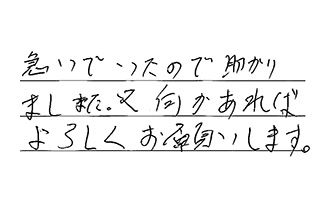 急いでいったので助かり
ました。又何かあれば
よろしくお願いします。